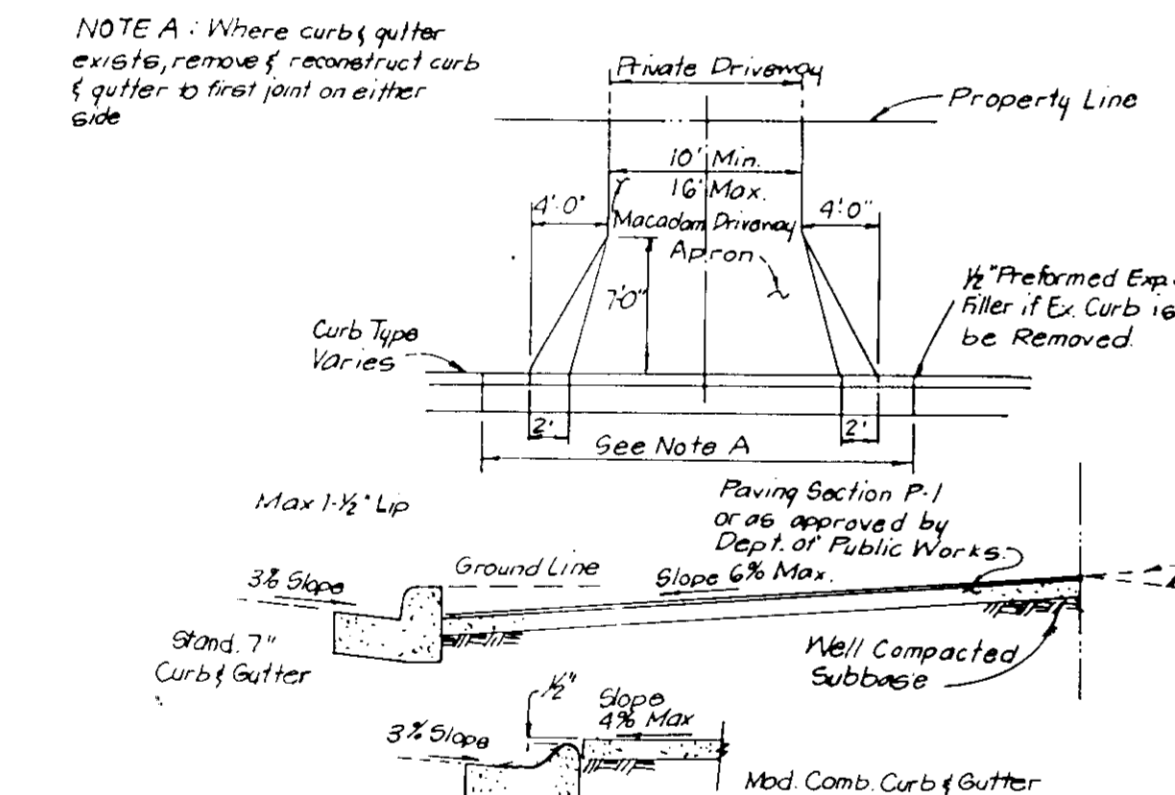 NOTE A : Where curb & gutter
exists, remove & reconstruct curb
& gutter to first joint on either
side
Private Driveway
Property Line
10' Min.
16' Max.
4'-0"
4'-0"
Macadam Driveway
Apron
7'-0"
1/2" Preformed Exp.
Filler if Ex. Curb is
be Removed.
Curb Type
Varies
2'
2'
See Note A
Max 1-1/2" Lip
Paving Section P-1
or as approved by
Dept. of Public Works.
Ground Line
Slope 6% Max.
3% Slope
Stand. 7"
Curb & Gutter
Well Compacted
Subbase
1/2"
Slope
4% Max
3% Slope
Mod. Comb. Curb & Gutter